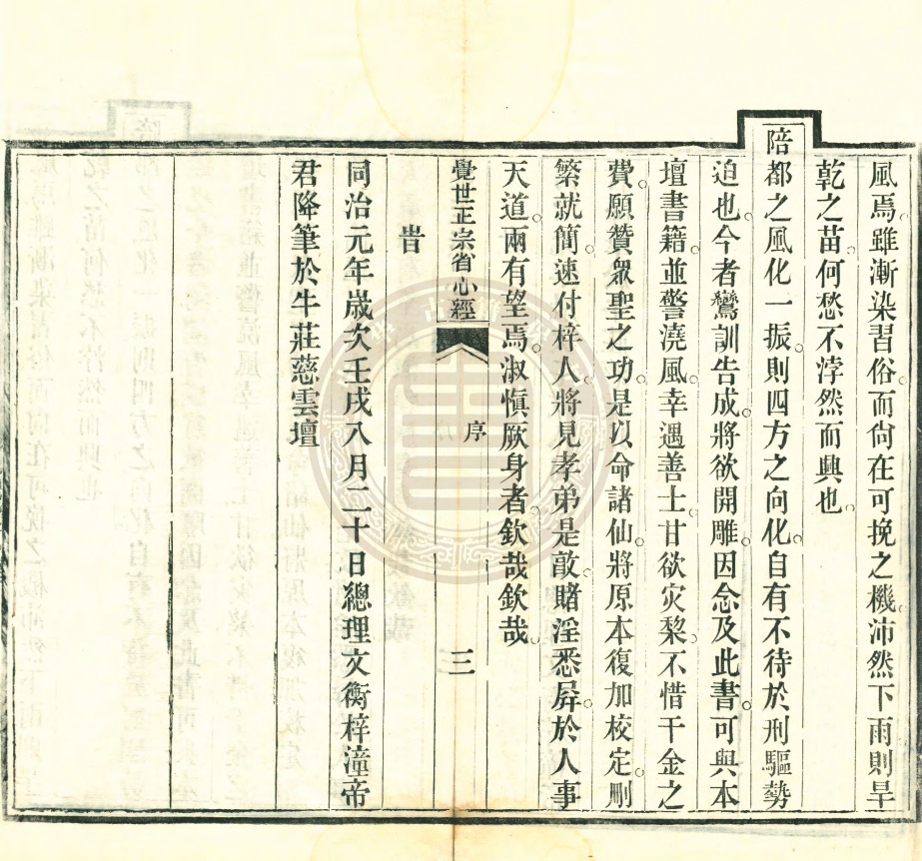 風焉雖漸染習俗而尙在可挽之機沛然下雨則旱
乾之苗何愁不浡然而興也
陪都之風化一振則四方之向化自有不待於刑驅勢
迫也今者鸞訓告成將欲開雕因念及此書可與本
壇書籍並警澆風幸遇善士甘欲灾棃不惜千金之
費願贊衆聖之功是以命諸仙將原本復加校定刪
繁就簡速付梓人將見孝弟是敦賭淫悉屛於人事
天道兩有望焉淑愼厥身者欽哉欽哉
覺世正宗省心經 序 三
旹
同治元年歲次壬戌八月二十日總理文衡梓潼帝
君降筆於牛莊慈雲壇